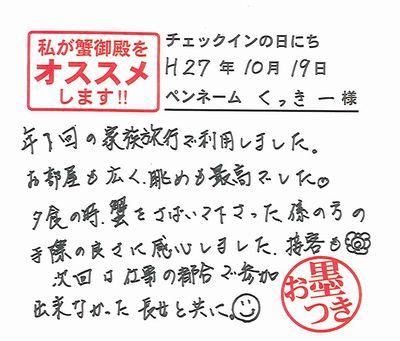 私が蟹御殿を
オススメ
します!!
チェックインの日にち
H27年10月19日
ペンネーム くっきー様
年1回の家族旅行で利用しました。
お部屋も広く、眺めも最高でした。
夕食の時、蟹をさばいて下さった係の方の
手際の良さに感心しました。接客も
次回は仕事の都合で参加
出来なかった長女と共に。
お墨つき